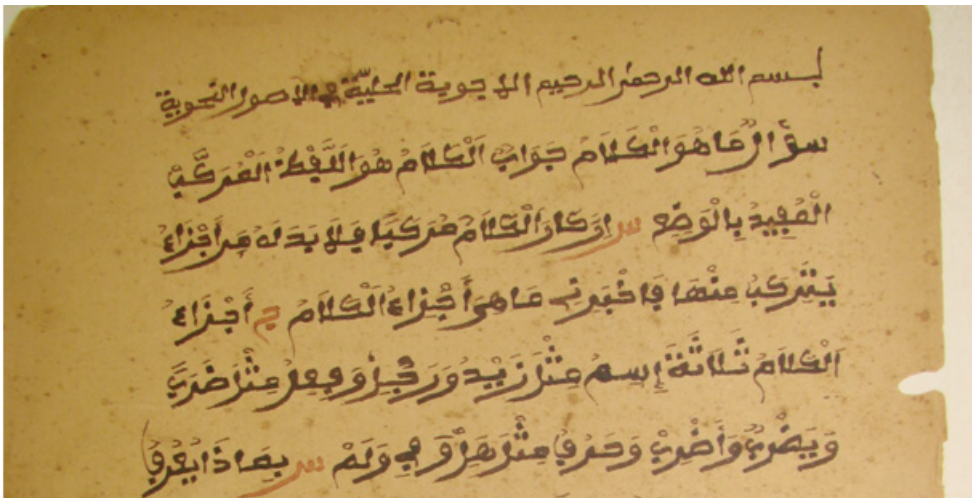 بسم الله الرحمن الرحيم الاجوبة الجليّة في الاصول النحوية
سؤال مَا هُوَ الْكَلَامُ جَوَابٌ اَلْكَلَامُ هُوَ اللَّفْظُ الْمُرَكَّبُ
الْمُفِيدُ بِالْوَضْعِ س إن كَانَ الْكَلَامُ مُرَكَّبًا فَلَا بُدَّ لَهُ مِنْ أَجْزَاءٍ
يَتَرَكَّبُ مِنْهَا فَاخْبِرْنِي مَا هِيَ أَجْزَاءُ الْكَلَامِ ج أَجْزَاءُ
الْكَلَامِ ثَلَاثَةٌ إِسْمٌ مِثْلَ زَيْدٍ وَرَجُلٍ وَفِعْلٌ مِثْلَ ضَرَبَ
وَيَضْرِبُ وَاضْرِبْ وَحَرْفٌ مِثْلَ هَلْ وَفِي وَلَمْ س بِمَاذَا يُعْرَفُ